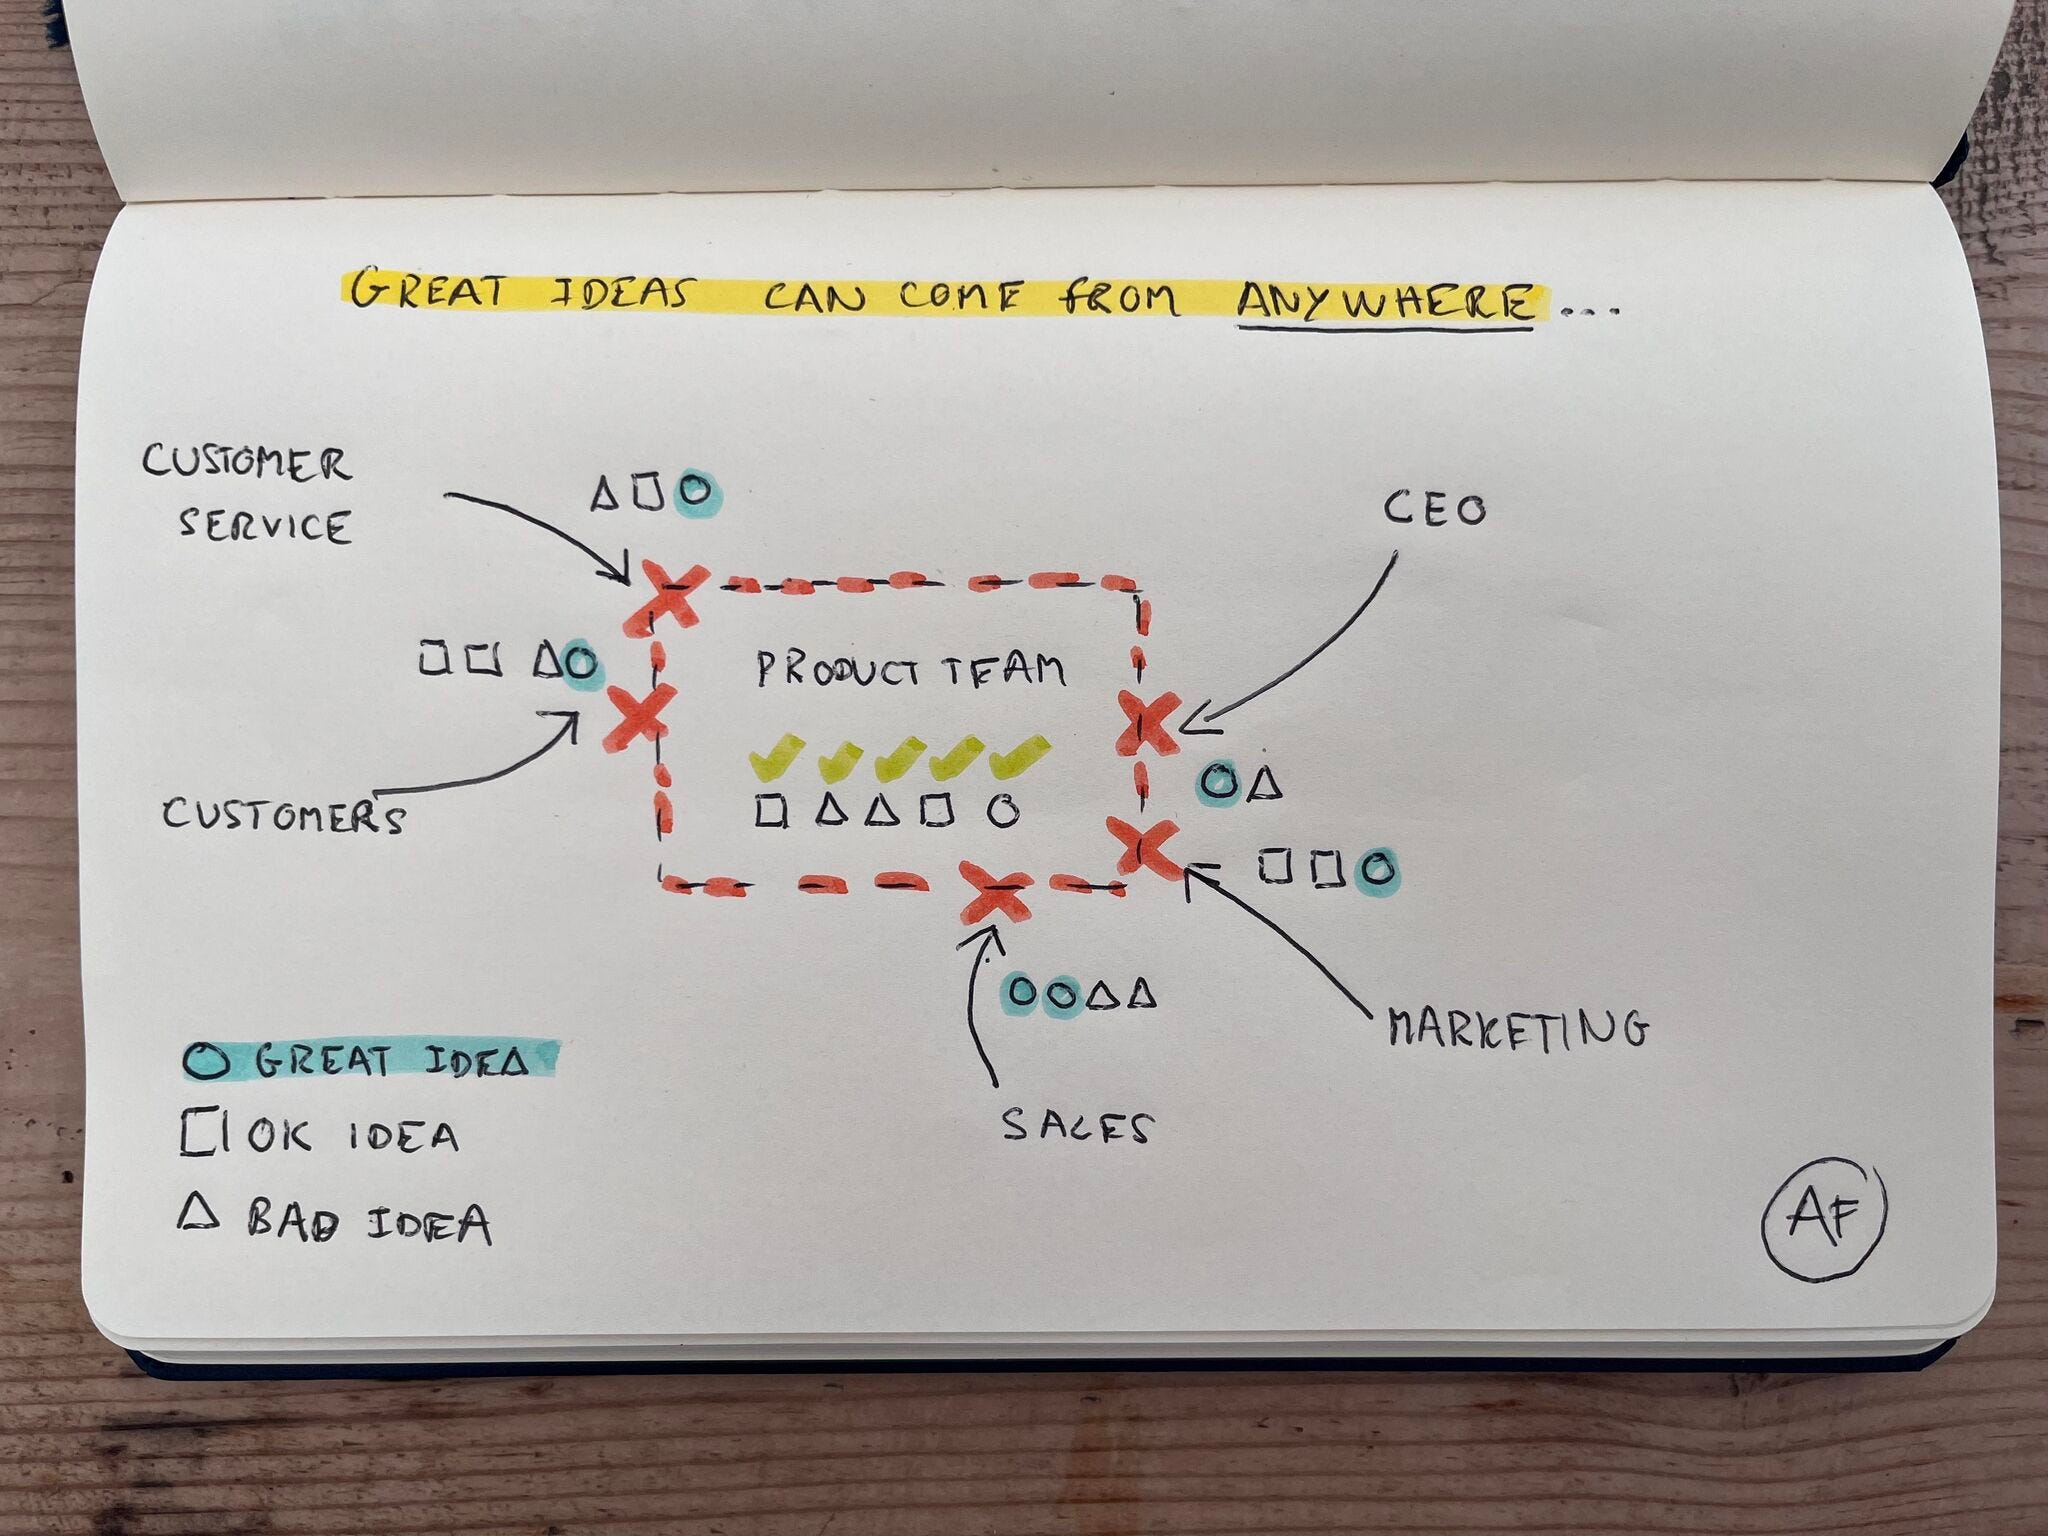 GREAT IDEAS CAN COME FROM ANYWHERE...
CUSTOMER
SERVICE
CEO
PRODUCT TEAM
CUSTOMERS
MARKETING
SALES
GREAT IDEA
OK IDEA
BAD IDEA
AF